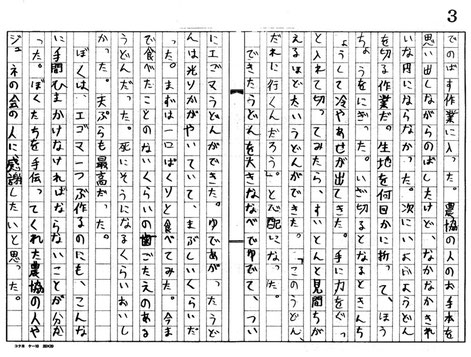 3
でのばす作業に入った。農協の人のお手本を
思い出しながらのばしたけど、なかなかきれ
いな円にならなかった。次に、いよいようどん
を切る作業だ。生地を何回か折って、ほう
ちょうをにぎった。いざ切るとなるときん
ちょうして冷やあせが出てきた。手に力をぐっ
と入れて切ってみたら、すいとんと見間ちが
えるほど太いうどんができた。「このうどん、
だれに行くんだろう。」と心配になった。
できたうどんを大きななべでゆでて、つい
にエゴマうどんができた。ゆであがったうど
んは光りかがやいていて、まぶしいくらいだ
った。まずは一口ぱくりと食べてみた。今ま
で食べたことのないくらいの歯ごたえのある
うどんだった。死にそうになるくらいおいし
かった。天ぷらも最高だった。
ぼくは、エゴマ一つぶ作るのにも、こんな
に手間ひまかけなければならないことが分か
った。ぼくたちを手伝ってくれた農協の人や
ジュネの会の人に感謝したいと思った。
コクヨ ケ-10 20×20